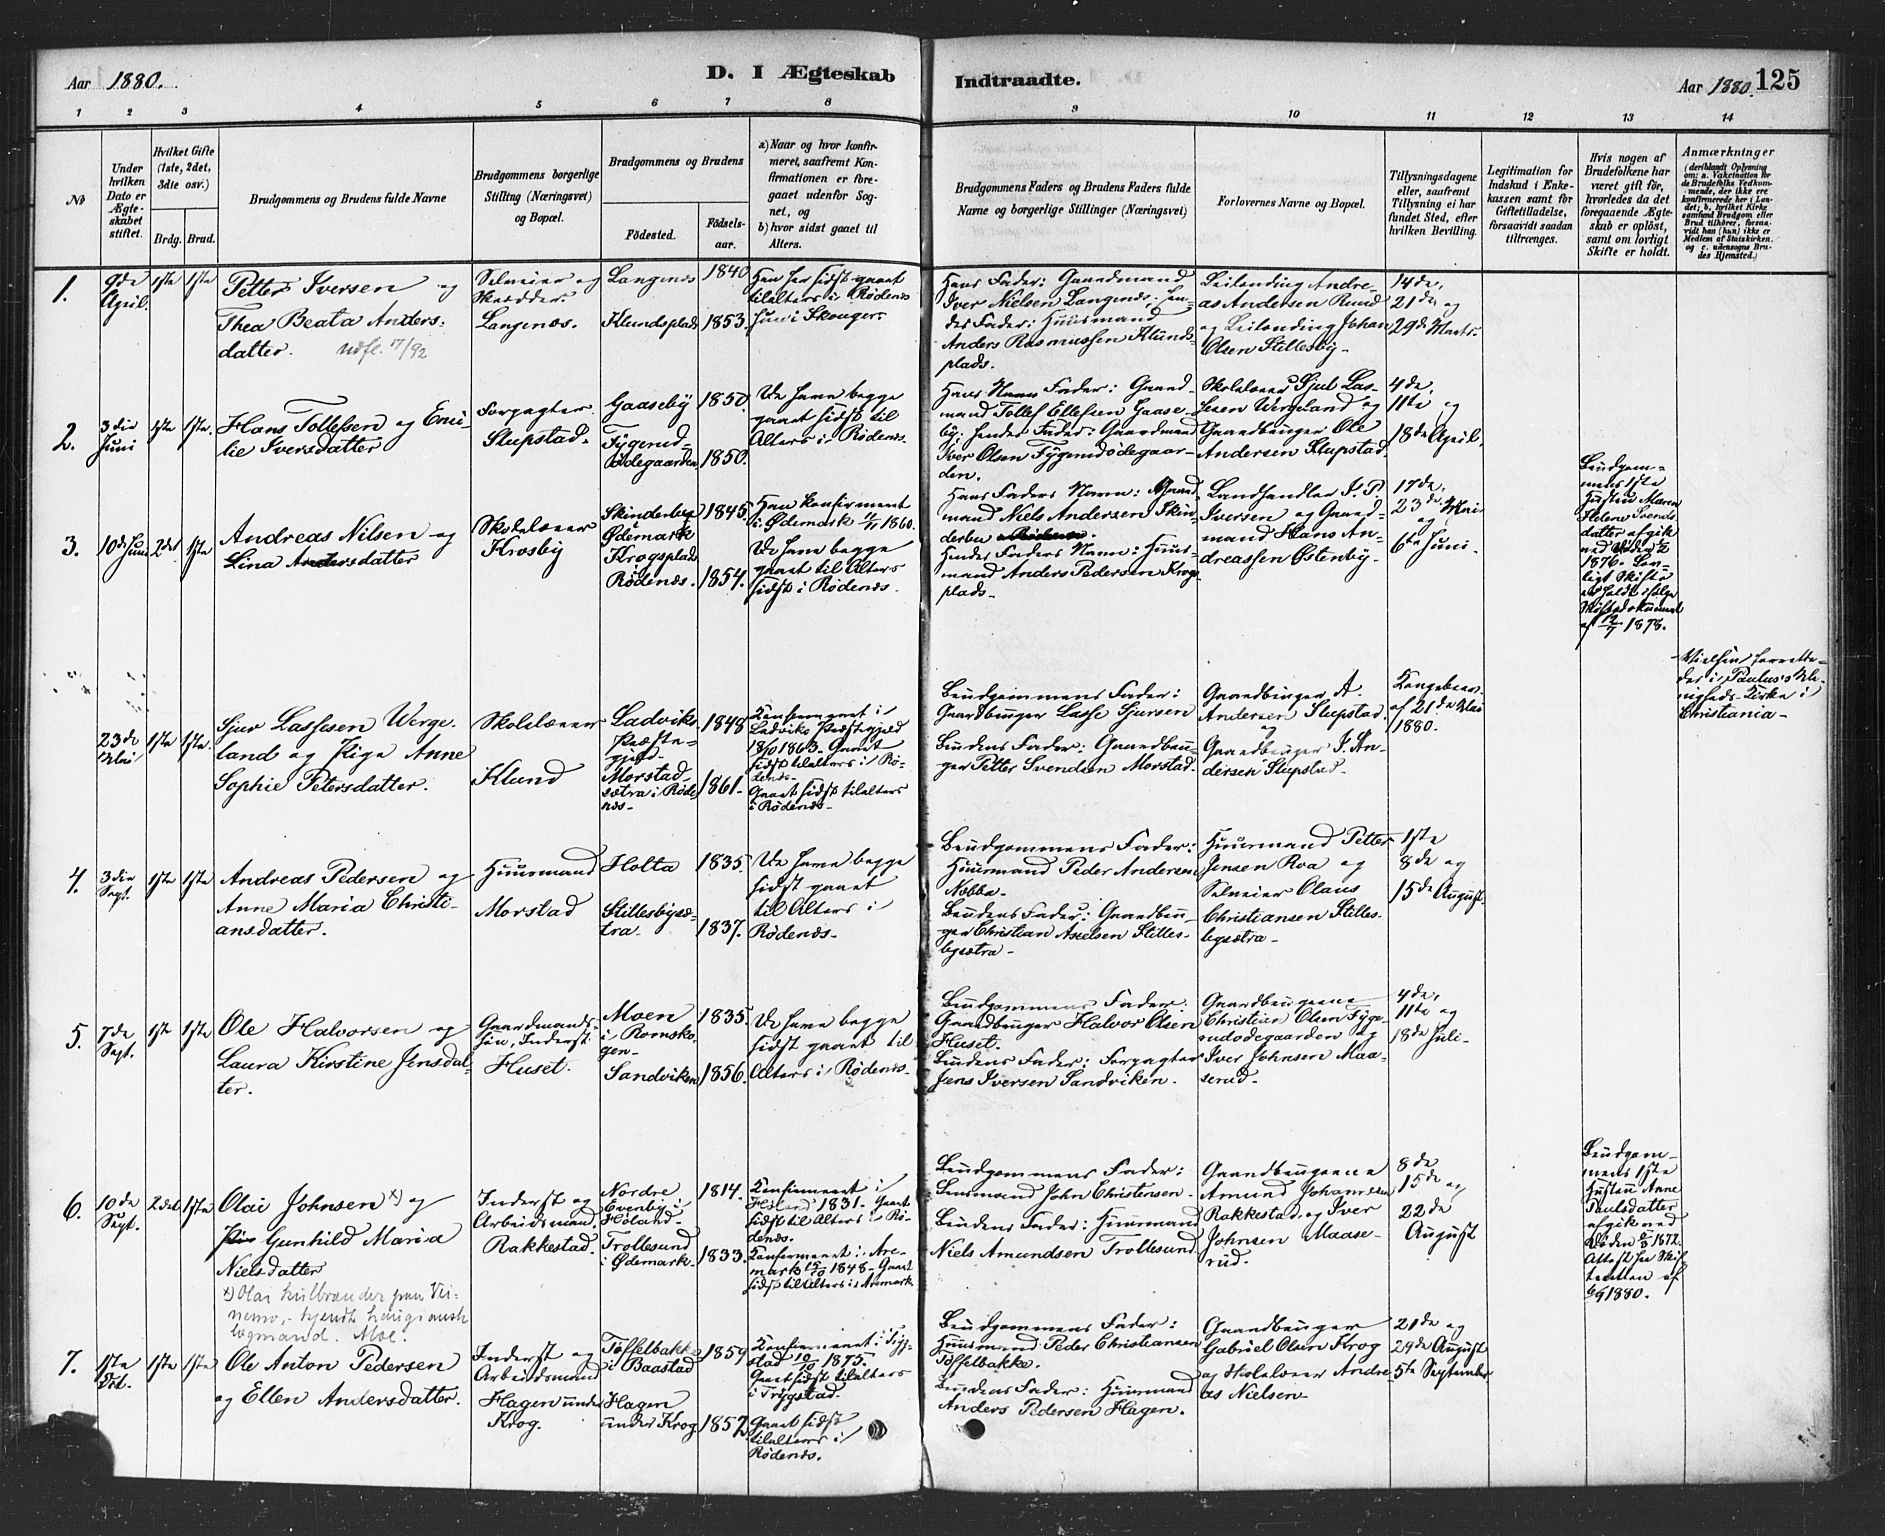 Aar 1880.
D. I Ægteskab
Indtraadte.
Aar 1880.
125
1 2 3 4 5 6 7 8 9 10 11 12 13 14
No
Under hvilken Dato er Ægteskabet stiftet.
Hvilket Gifte (1ste, 2det, 3die osv.)
Brdg. Brud.
Brudgommens og Brudens fulde Navne
Brudgommens borgerlige Stilling (Næringsvei) og Bopæl.
Brudgommens og Brudens
Fødested.
Fødselsaar.
a) Naar og hvor konfirmeret, saafremt Konfirmationen er foregaaet udenfor Sognet, og
b) hvor sidst gaaet til Alters.
Brudgommens Faders og Brudens Faders fulde Navne og borgerlige Stillinger (Næringsvei)
Forlovernes Navne og Bopæl.
Tillysningsdagene eller, saafremt Tillysning ei har fundet Sted, efter hvilken Bevilling.
Legitimation for Indskud i Enkekassen samt for Giftetilladelse, forsaavidt saadan tiltrænges.
Hvis nogen af Brudefolkene har været gift før, hvorledes da det foregaaende Ægteskab er opløst, samt om lovligt Skifte er holdt.
Anmærkninger
1.
9de April
1ste 1ste
Petter Iversen og
Thea Beata Anders-
datter. udfl. 17/92
Selveier og
Skrædder
Langenæs.
Langenæs 1840
Klundsplads 1853.
Han her sidst gaaet
tilalters i Rødenes
hun i Skouger.
Hans Fader: Gaardmand
Iver Nielsen Langenæs, hen-
des Fader: Huusmand
Anders Rasmussen Klunds-
plads.
Leilending Andre-
as Andersen Rund
og Leilending Johan
Olsen Stillesby.
14de,
21de og
29de Marts.
2.
3die Juni
1ste 1ste.
Hans Tollefsen og Emi-
lie Iversdatter
Forpagter
Slupstad.
Gaaseby 1850.
Fygerud-
ødegaarden 1850.
De have begge
gaaet sidst til
Alters i Rødenes.
Hans Fader: Gaard-
mand Tollef Ellefsen Gaase-
by; hendes Fader: Gaardmand
Iver Olsen Fygerudødegaar-
den.
Skolelærer Sjul Las-
sesen Wergeland og
Gaardbruger Ole
Andersen Slupstad.
4de,
11te og
18de April.
3.
10de Juni
2det 1ste
Andreas Nilsen og
Lina Andersdatter
Skolelærer
Krosby
Skinderbø
Ødemark 1845.
Krogsplads
Rødenæs. 1854.
Han konfirmeret
i Ødemark 1860.
De have begge
gaaet til Alters
sidst i Rødenes.
Hans Faders Navn: Gaard-
mand Niels Andersen Skin-
derbu
Hendes Faders Navn: Huus-
mand Anders Pedersen Krogs-
plads.
Landhandler I. P.
Iversen og Gaard-
mand Hans An-
dreassen Østenby.
17de,
23de Mai
og
6te Juni.
Brudgom-
mens 1ste
Hustru Maren
Helene Svends-
datter afgik
ved Døden
1876. Lov-
ligt Skifte
er holdt ifølge
Skiftedokument
af 12/7 1878.
23de Mai
1ste 1ste.
Sjur Lassesen Werge-
land og Pige Anne
Sophie Petersdatter.
Skolelærer
Klund
Ladviks
Præste-
gjeld. 1848
Morstad-
sætra i Røde-
næs. 1861.
Konfirmeret i
Ladviks Præstegjeld
18/10 1863. Gaaet
sidst tilalters i Rø-
denes.
Gaaet sidst tilalters
i Rødenes.
Brudgommens Fader:
Gaardbruger Lasse Sjursen
Brudens Fader: Gaardbru-
ger Petter Svendsen Morstad.
Gaardbruger A.
Andersen Slupstad.
og
Gaardbruger J. An-
dersen Slupstad.
Kongebrev
af 21de Mai
1880.
Vielsen forrette-
des i Paulus's Me-
nigheds Kirke i
Christiania.
4.
3die Sept.
1ste 1ste
Andreas Pedersen og
Anne Maria Christi-
ansdatter.
Huusmand
Morstad
Holta 1835.
Stillesbysæ-
tra. 1837.
De have begge
sidst gaaet
til Alters i
Rødenes.
Brudgommens Fader:
Huusmand Peder Andersen
Nobba.
Brudens Fader: Gaardbru-
ger Christian Axelsen Stilles-
bysætra.
Huusmand Petter
Jensen Roa og
Selveier Olaus
Christiansen Stilles-
bysætra.
1ste
8de og
15de August.
5.
7de Sept.
1ste 1ste
Ole Halvorsen og
Laura Kirstine Jensdat-
ter.
Gaardmands-
søn, Inderst
Huset.
Moen
i Romsko-
gen. 1835.
Sandviken 1856.
De have begge
sidst gaaet til
Alters i Rødenes.
Brudgommens Fader:
Gaardbruger Halvor Olsen
Huset.
Brudens Fader: Forpagter
Jens Iversen Sandviken.
Gaardbrugerne
Christian Olsen Fyge-
rudødegaarden og
Iver Johnsen Maa-
serud.
4de,
11te og
18de Juli.
6.
10de Sept.
2det 1ste
Olai Johnsen x) og
Gunhild Maria
Nielsdatter
x) Olai kulbrænder paa Vei-
nemo, - kjendt haugiansk
lægmand. Moe.
Inderst og
Arbeidsmand.
Rakkestad.
Nordre
Evenby i
Høland. 1814.
Trollesund
i Ødemark. 1833.
Konfirmeret i
Høland 1831. Gaaet
sidst til Alters i Rø-
denes.
Konfirmeret i Are-
mark 1848. Gaaet
sidst til Alters i Aremark.
Brudgommens Fader:
Lensmand John Christensen.
Brudens Fader: Huusmand
Niels Amundsen Trollesund.
Gaardbrugerne
Amund Johannesen
Rakkestad og Iver
Johnsen Maase-
rud.
8de
15de og
22de
August
Brudgom-
mens 1ste
Hustru Anne
Paulsdatter
afgik ved
Døden 1872.
Attest fra Skif-
teretten af
1880.
7.
1ste Oct.
1ste 1ste
Ole Anton Pedersen
og Ellen Andersdatter.
Inderst og
Arbeidsmand
Hagen under
Krog.
Tøffelbakke
i Baastad 1859
Hagen
under Krog 1857
Konfirmeret i Tryg-
stad 1875.
Gaaet sidst tilalters
i Trygstad.
Gaaet sidst
tilalters i
Rødenes.
Brudgommens Fader:
Huusmand Peder Christiansen
Tøffelbakke.
Brudens Fader: Huusmand
Anders Pedersen Hagen.
Gaardbruger
Gabriel Olsen Krog
og Skolelærer Andre-
as Nielsen.
21de og
29de August
5te September